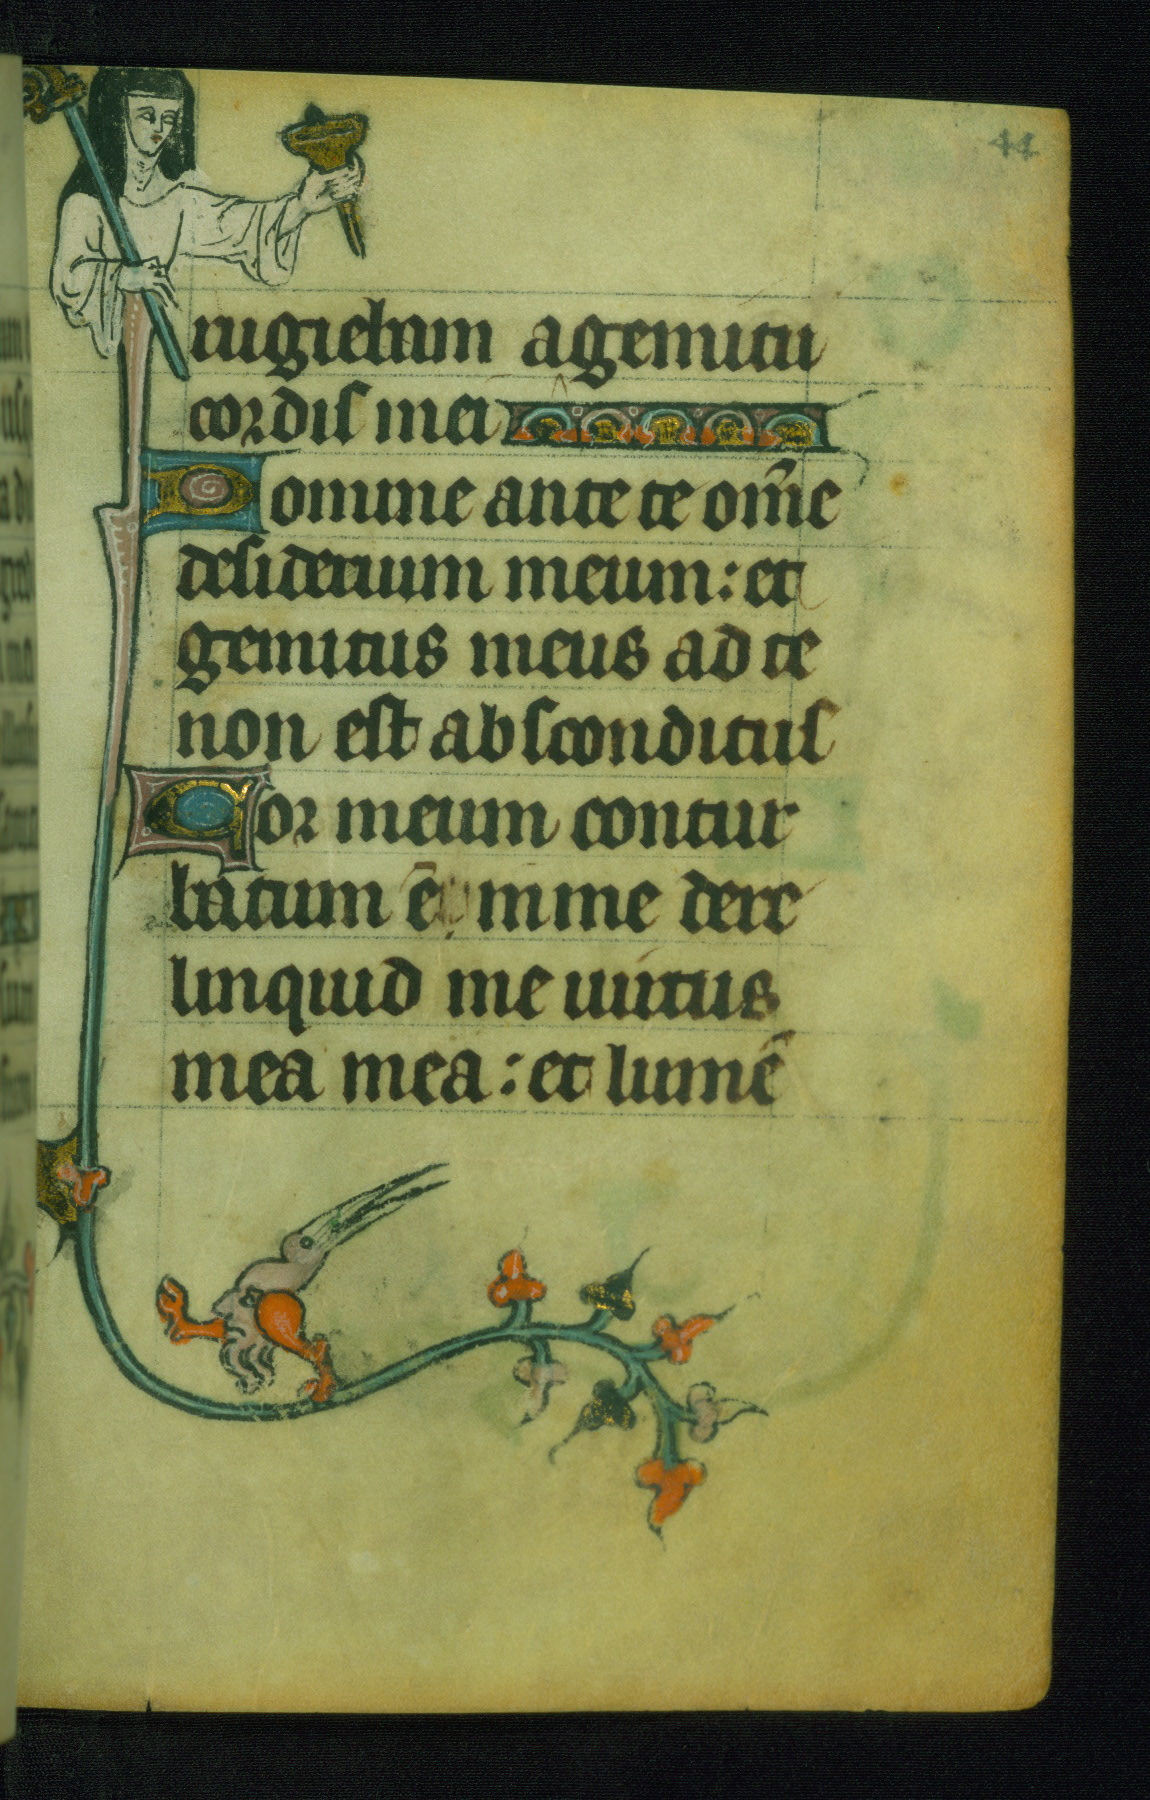 44
rugiebam a gemitu
cordis mei
Domine ante te om̄e
desiderium meum: et
gemitus meus ad te
non est absconditus
Cor meum contur
batum ē in me dere
linquid me uirtus
mea mea: et lumē